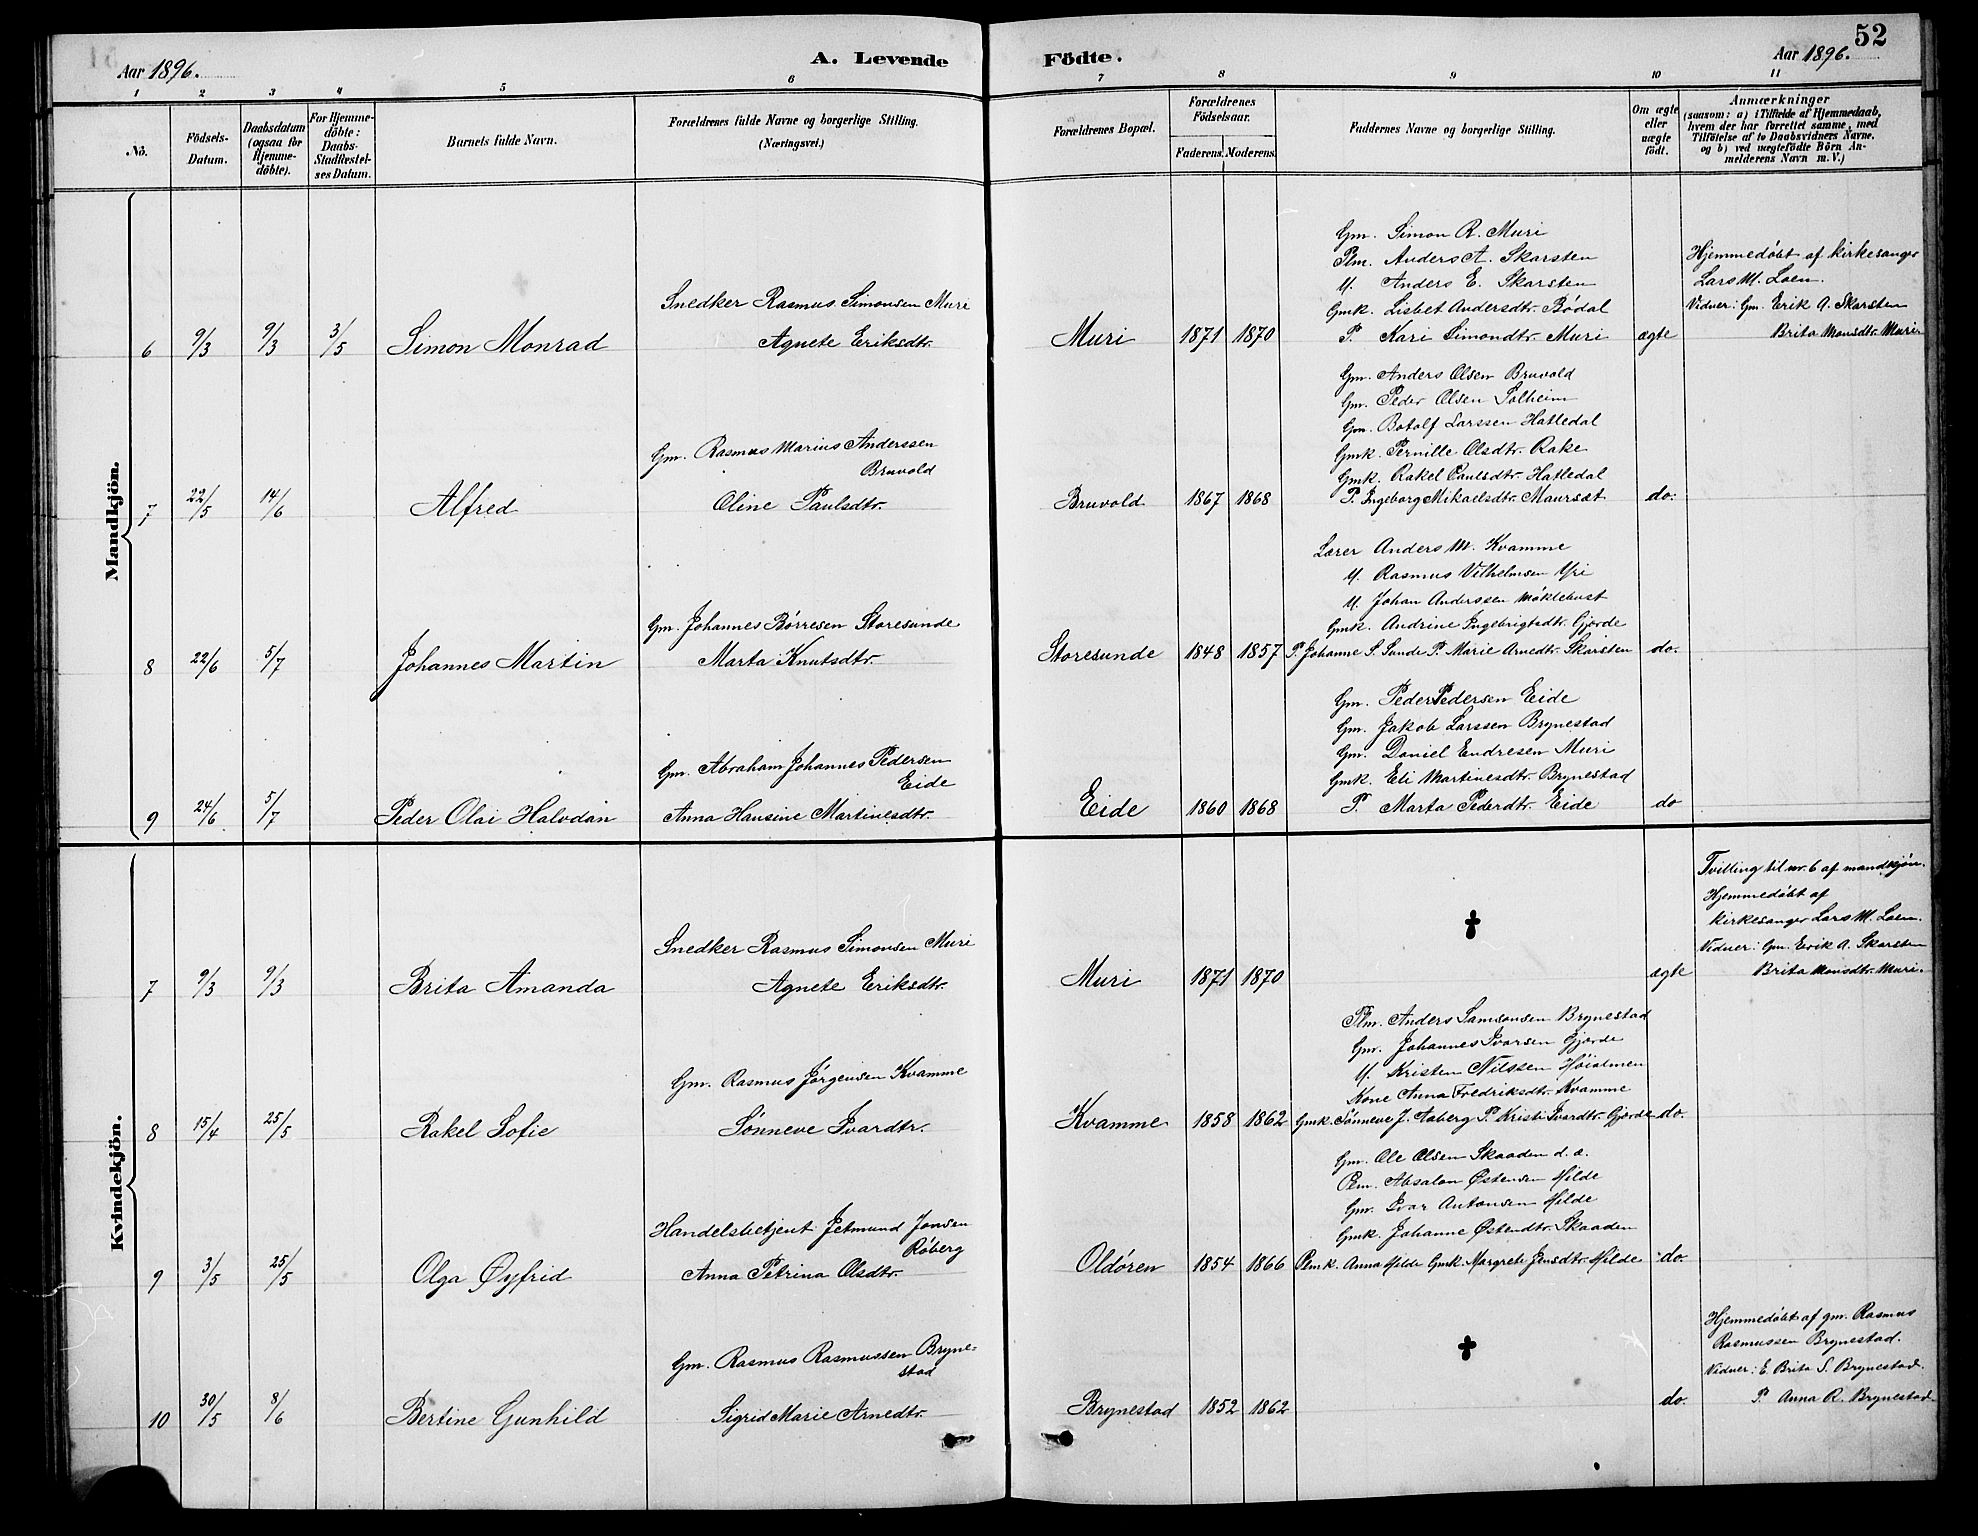 52
Aar 1896.
A. Levende
Födte.
Aar 1896.
1 2 3 4 5 6 7 8 9 10 11
No.
Födsels-Datum.
Daabsdatum (ogsaa for Hjemmedöbte).
For Hjemmedöbte: Daabs-Stadfæstelses Datum.
Barnets fulde Navn.
Forældrenes fulde Navne og borgerlige Stilling.
(Næringsvei.)
Forældrenes Bopæl.
Forældrenes Födselsaar.
Faderens. Moderens.
Faddernes Navne og borgerlige Stilling.
Om ægte eller uægte födt.
Anmærkninger
(saasom: a) i Tilfælde af Hjemmedaab,
hvem der har forrettet samme, med
Tilföielse af to Daabsvidners Navne.
og b) ved uægtefödte Börn An-
melderens Navn m. V.)
Mandkjön.
6 9/3 9/3 3/5 Simon Monrad
Snedker Rasmus Simonsen Muri
Agnete Eriksdtr.
Muri 1871 1870
Gm. Simon R. Muri
Plm. Anders A. Skarsten
U. Anders E. Skarsten
Gmk. Lisbet Andersdtr. Bødal
P. Kari Simondtr. Muri
ægte
Hjemmedøbt af kirkesanger
Lars M. Loen.
Vidner: Gm. Erik A. Skarsten
Brita Monsdtr. Muri.
7 22/5 14/6 Alfred
Gm. Rasmus Marius Anderssen
Bruvold
Oline Paulsdtr.
Bruvold 1867 1868
Gm. Anders Olsen Bruvold
Gm. Peder Olsen Solheim
Gm. Botolf Larssen Hatledal
Gmk. Pernille Olsdtr. Rake
Gmk. Rakel Paulsdtr. Hatledal
P. Ingeborg Mikaelsdtr. Maurset
do.
8 22/6 5/7 Johannes Martin
Gm. Johannes Børresen Storesunde
Marta Knutsdtr.
Storesunde 1848 1857
Lærer Anders M. Kvamme
U. Rasmus Vilhelmsen Yri
U. Johan Anderssen Møklebust
Gmk. Andrine Ingebrigtsdtr. Gjørde
P. Johanne S. Sunde P. Marie Arnedtr. Skarsten
do.
9 24/6 5/7 Peder Olai Halvdan
Gm. Abraham Johannes Pedersen
Eide
Anna Hansine Martinesdtr.
Eide 1860 1868
Gm. Peder Pedersen Eide
Gm. Jakob Larssen Brynestad
Gm. Daniel Endresen Muri
Gmk. Eli Martinesdtr. Brynestad
P. Marta Pederdtr. Eide
do
Kvindekjön.
7 9/3 9/3 Brita Amanda
Snedker Rasmus Simonsen Muri
Agnete Eriksdtr.
Muri 1871 1870
✝
ægte
Tvilling til nr. 6 af mandkjøn.
Hjemmedøbt af
kirkesanger Lars M. Loen.
Vidner: Gm. Erik A. Skarsten
Brita Monsdtr. Muri.
8 15/4 25/5 Rakel Sofie
Gm. Rasmus Jørgensen Kvamme
Sønneve Ivardtr.
Kvamme 1858 1862
Plm. Anders Samsonsen Brynestad
Gm. Johannes Ivarsen Gjørde
U. Kristen Nilssen Høialmen
Kone Anna Fredriksdtr. Kvamme
Gmk. Sønneve J. Aaberg P. Kristi Ivardtr. Gjørde
do.
9 3/5 25/5 Olga Øyfrid
Handelsbetjent Jetmund Jonsen
Røberg
Anna Petrina Olsdtr.
Oldøren 1854 1866
Gm. Ole Olsen Skaaden d. æ.
Plm. Absalon Østensen Hilde
Gm. Ivar Antonsen Hilde
Gmk. Johanne Østendtr. Skaaden
Plmk. Anna Hilde Gmk. Margrete Jensdtr. Hilde
do.
10 30/5 8/6 Bertine Gunhild
Gm. Rasmus Rasmussen Bryne-
stad
Sigrid Marie Arnedtr.
Brynestad 1852 1862
✝
do.
Hjemmedøbt af gm. Rasmus
Rasmussen Brynestad.
Vidner: E. Brita S. Brynestad.
P. Anna R. Brynestad